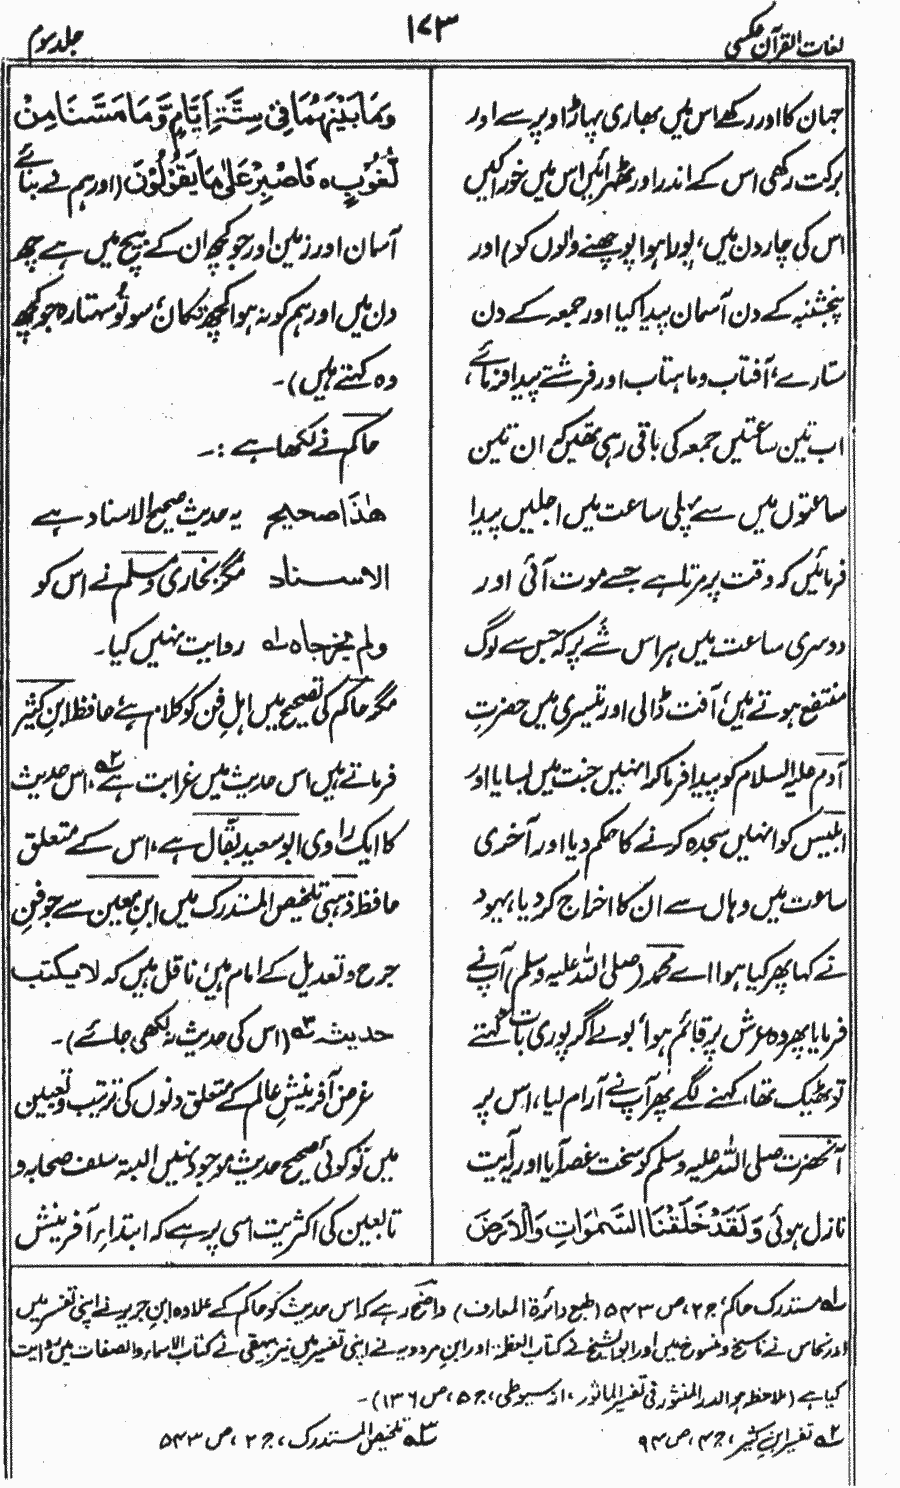 لغات القرآن عکسی
۱۷۳
جلد سوم
جہان کا اور رکھے اس میں بھاری پہاڑ اوپر سے اور
برکت رکھی اس کے اندر اور ٹھہرائیں اس میں خوراکیں
اس کی چار دن میں، پورا ہوا پوچھنے والوں کو) اور
پنجشنبہ کے دن آسمان پیدا کیا اور جمعہ کے دن
ستارے، آفتاب و ماہتاب اور فرشتے پیدا فرمائے،
اب تین ساعتیں جمعہ کی باقی رہی تھیں کہ ان تین
ساعتوں میں سے پہلی ساعت میں اجلیں پیدا
فرمائیں کہ وقت پر مرتا ہے جسے موت آئی اور
دوسری ساعت میں ہر اس شے پر کہ جس سے لوگ
منتفع ہوتے ہیں، آفت ڈالی اور تیسری میں حضرتِ
آدم علیہ السلام کو پیدا فرما کر انہیں جنت میں بسایا اور
ابلیس کو انہیں سجدہ کرنے کا حکم دیا اور آخری
ساعت میں وہاں سے ان کا اخراج کر دیا، یہود
نے کہا پھر کیا ہوا اے محمد (صلی اللہ علیہ وسلم) آپ نے
فرمایا پھر وہ عرش پر قائم ہوا، بولے اگر پوری بات کہتے
تو ٹھیک تھا، کہنے لگے پھر آپ نے آرام لیا، اس پر
آنحضرت صلی اللہ علیہ وسلم کو سخت غصہ آیا اور یہ آیت
نازل ہوئی وَلَقَدْ خَلَقْنَا السَّمٰوَاتِ وَالْاَرْضَ
وَمَا بَيْنَهُمَا فِي سِتَّةِ اَيَّامٍ وَّمَا مَسَّنَا مِنْ
لُّغُوْبٍ ہ فَاصْبِرْ عَلٰى مَا يَقُوْلُوْنَ (اور ہم نے بنائے
آسمان اور زمین اور جو کچھ ان کے بیچ میں ہے چھ
دن میں اور ہم کو نہ ہوا کچھ تکان، سو تو سہتا رہ جو کچھ
وہ کہتے ہیں)۔
حاکم نے لکھا ہے :۔
ھٰذا صحیح یہ حدیث صحیح الاسناد ہے
الاسناد مگر بخاری و مسلم نے اس کو
ولم یخرجاہ لہ روایت نہیں کیا۔
مگر حاکم کی تصحیح میں اہلِ فن کو کلام ہے، حافظ ابن کثیر
فرماتے ہیں اس حدیث میں غرابت ہے ۲؎، اس حدیث
کا ایک راوی ابو سعید بقال ہے، اس کے متعلق
حافظ ذہبی تلخیص المستدرک میں ابن معین سے جو فنِ
جرح و تعدیل کے امام ہیں، ناقل ہیں کہ لا یکتب
حدیثہ ۳؎ (اس کی حدیث نہ لکھی جائے)۔
غرض آفرینشِ عالم کے متعلق دنوں کی ترتیب و تعیین
میں تو کوئی صحیح حدیث موجود نہیں البتہ سلف صحابہ و
تابعین کی اکثریت اسی پر ہے کہ ابتداءِ آفرینش
۱؎ مستدرک حاکم، ج ۲، ص ۵۴۳ (طبع دائرۃ المعارف) واضح رہے کہ اس حدیث کو حاکم کے علاوہ ابن جریر نے اپنی تفسیر میں
اور نحاس نے ناسخ و منسوخ میں اور ابو الشیخ نے کتاب العظمہ اور ابن مردویہ نے اپنی تفسیر میں نیز بیہقی نے کتاب الاسماء والصفات میں روایت
کیا ہے (ملاحظہ ہو الدر المنثور فی تفسیر الماثور، از سیوطی، ج ۵، ص ۱۳۶)۔
۲؎ تفسیر ابن کثیر، ج ۴، ص ۹۴
۳؎ تلخیص المستدرک، ج ۲، ص ۵۴۳